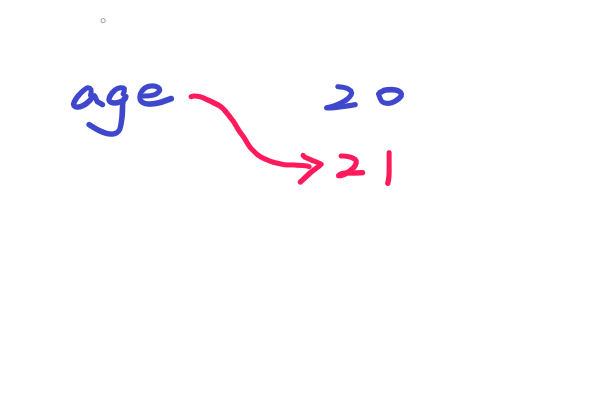 age 20
21